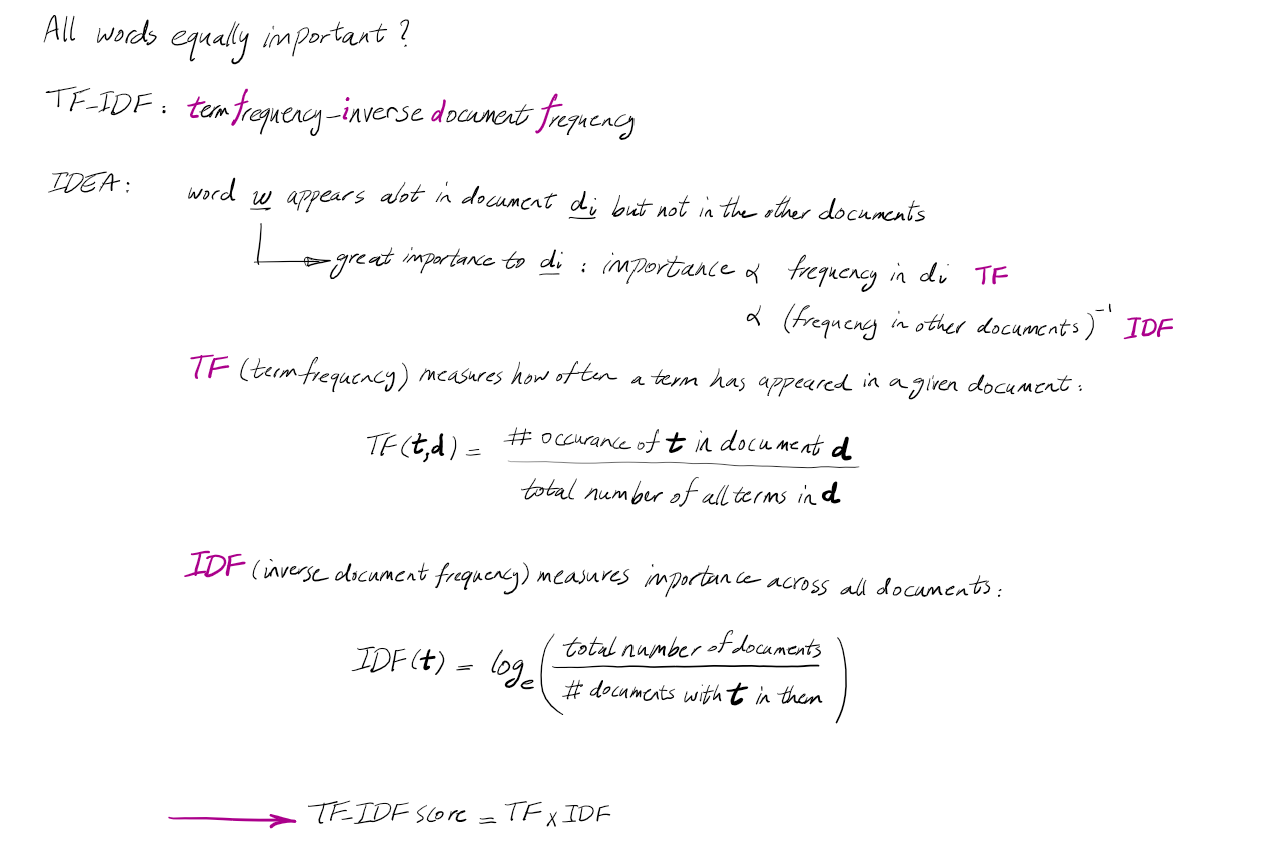 All words equally important?
TF-IDF: term frequency-inverse document frequency
IDEA: word w appears alot in document di but not in the other documents
great importance to di : importance ∝ frequency in di TF
∝ (frequency in other documents)⁻¹ IDF
TF (term frequency) measures how often a term has appeared in a given document:
TF(t,d) = # occurance of t in document d
total number of all terms in d
IDF (inverse document frequency) measures importance across all documents:
IDF(t) = logₑ ( total number of documents
# documents with t in them )
TF-IDF score = TF x IDF